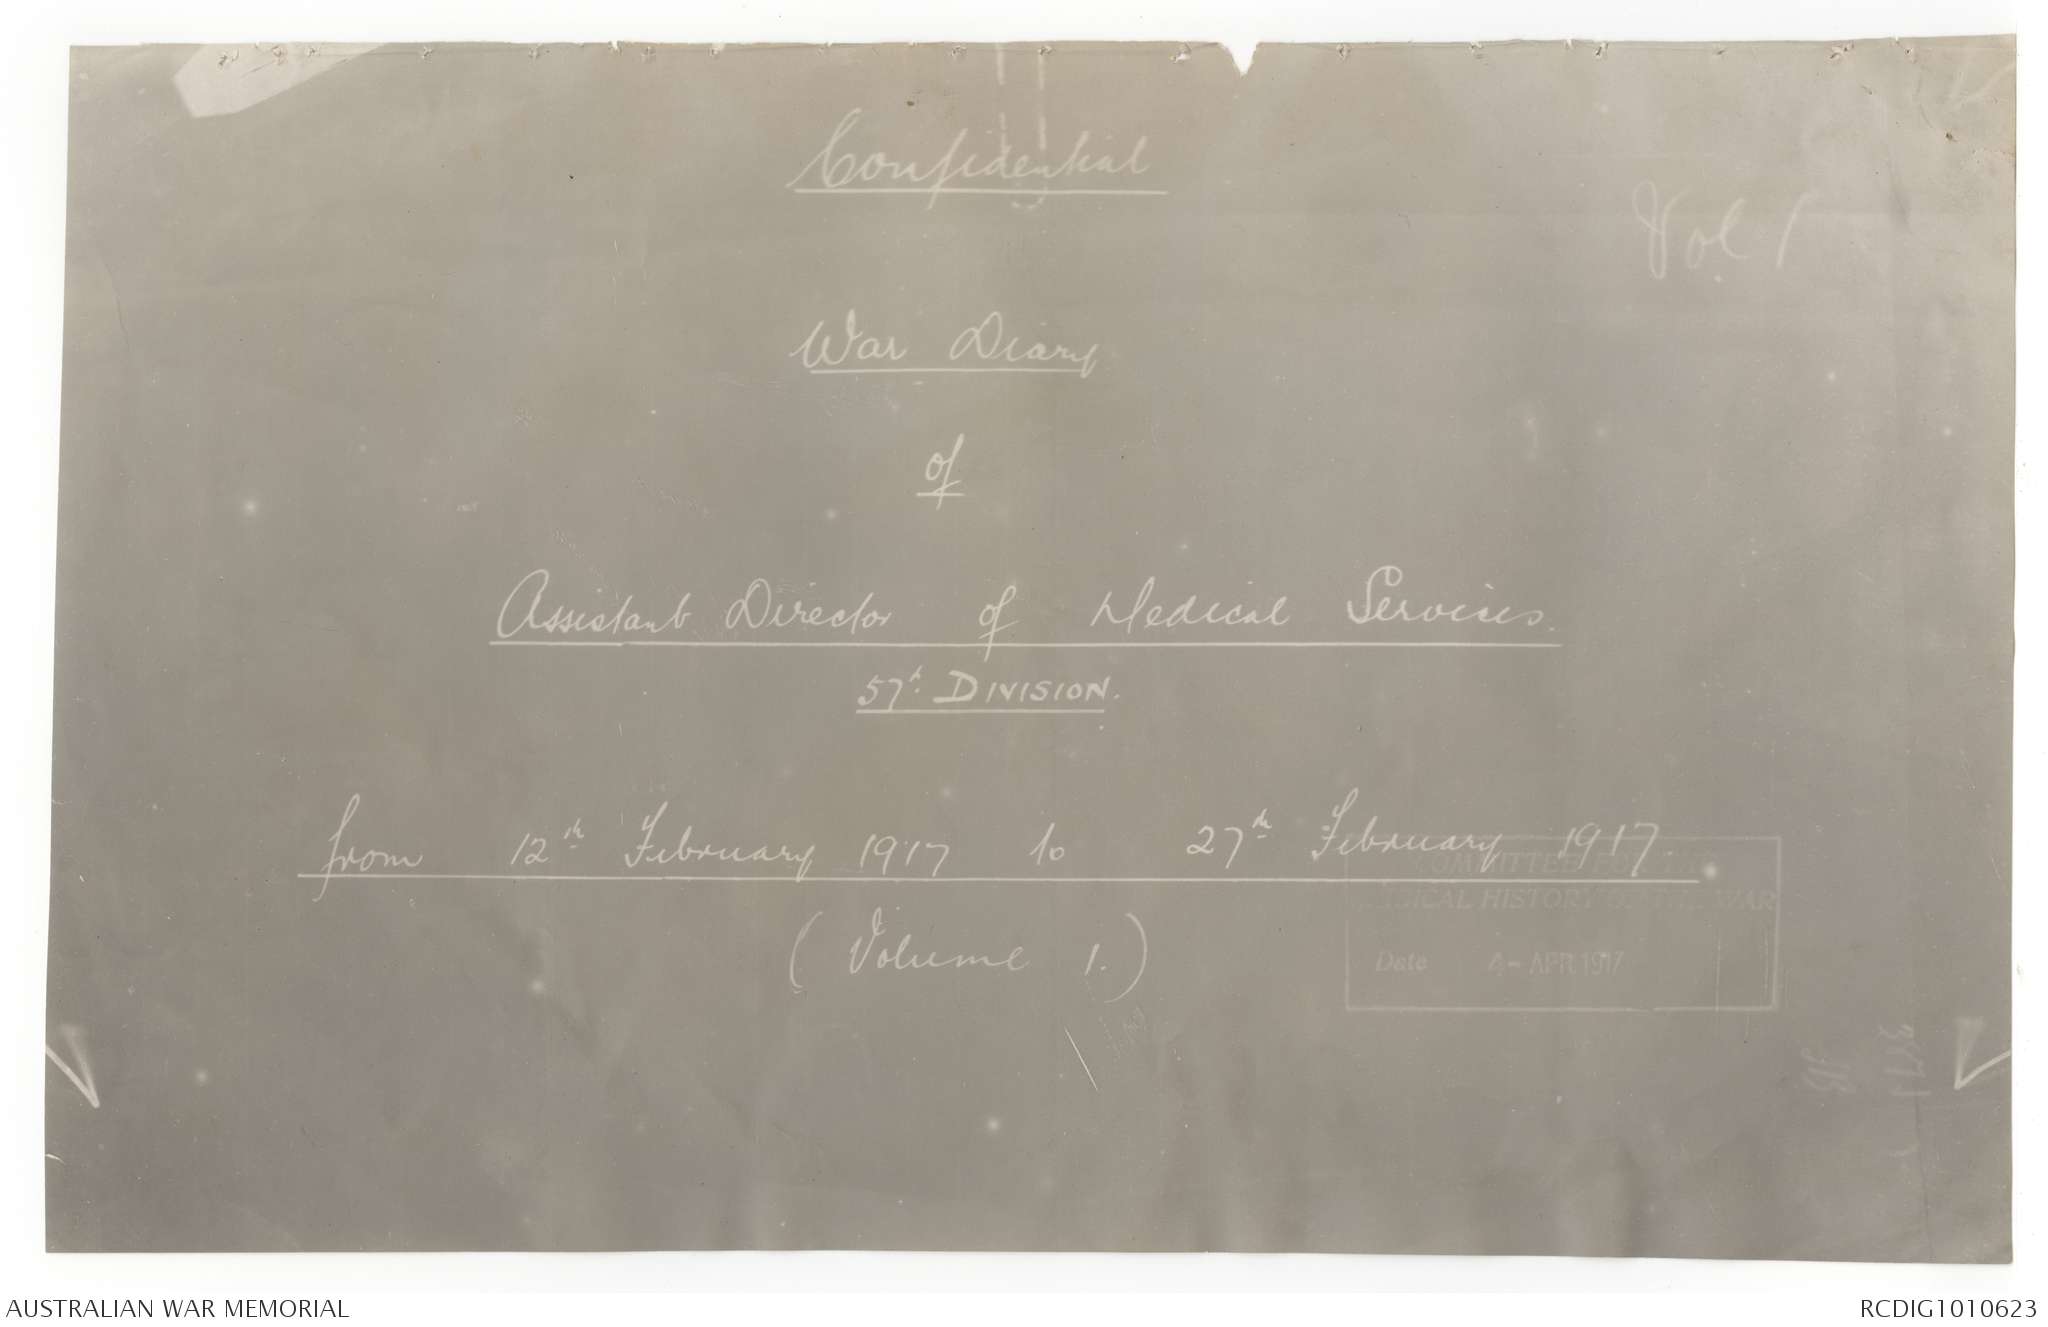 Confidential
Vol 1
War Diary
of
Assistant Director of Medical Services.
57th DIVISION.
from 12th February 1917 to 27th February 1917.
(Volume 1.)
COMMITTEE FOR THE
MEDICAL HISTORY OF THE WAR
Date 4-APR.1917
AUSTRALIAN WAR MEMORIAL
RCDIG1010623